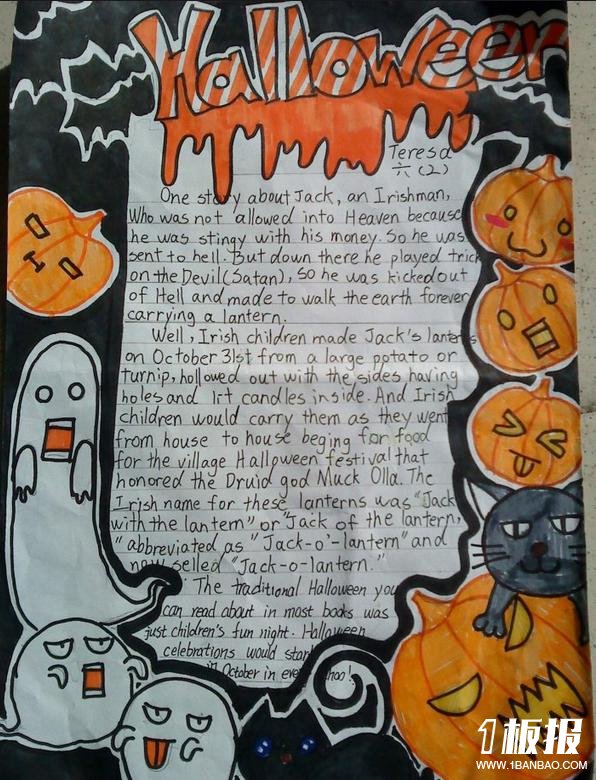 Halloween
Teresa
六(2)
One story about Jack, an Irishman,
Who was not allowed into Heaven because
he was stingy with his money. So he was
sent to hell. But down there he played trick
on the Devil(Satan), so he was kicked out
of Hell and made to walk the earth forever
carrying a lantern.
Well, Irish children made Jack's lanterns
on October 31st from a large potato or
turnip, hollowed out with the sides having
holes and lit candles inside. And Irish
children would carry them as they went
from house to house beging for food
for the village Halloween festival that
honored the Druid god Muck Olla. The
Irish name for these lanterns was "Jack
with the lantern" or "Jack of the lantern,
" abbreviated as "Jack-o'-lantern" and
now selled "Jack-o-lantern."
The traditional Halloween you
can read about in most books was
just children's fun night. Halloween
celebrations would start
October in every
1板报
WWW.1BANBAO.COM